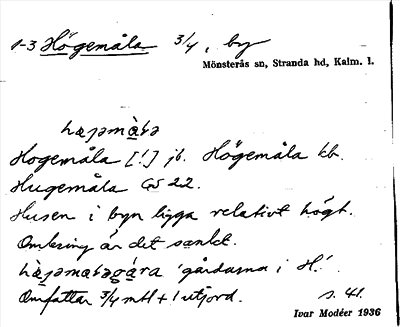 1-3 Högemåla 3/4, by
Mönsterås sn, Stranda hd, Kalm. l.
Hogemåla [!] jb. Högemåla kb.
Hugemåla GS 22.
Husen i byn ligga relativt högt.
Omkring är det sankt.
'gårdarna i H.'
Omfattar 3/4 mtl + 1 utjord. s. 41.
Ivar Modéer 1936